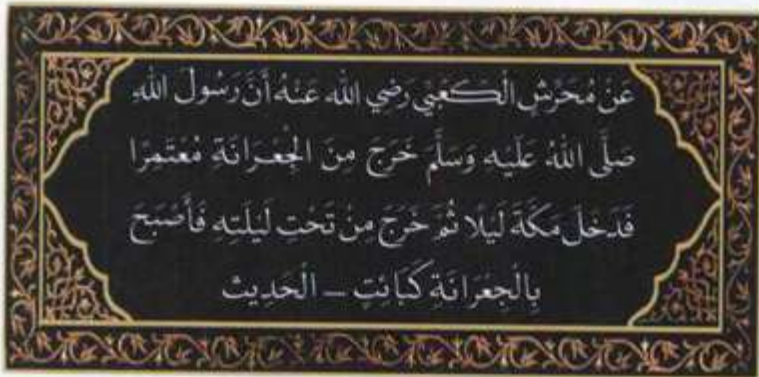 عَنْ مُحَرِّشٍ الْكَعْبِيِّ رَضِيَ اللهُ عَنْهُ أَنَّ رَسُولَ اللهِ
صَلَّى اللهُ عَلَيْهِ وَسَلَّمَ خَرَجَ مِنَ الْجِعْرَانَةِ مُعْتَمِرًا
فَدَخَلَ مَكَّةَ لَيْلًا ثُمَّ خَرَجَ مِنْ تَحْتِ لَيْلَتِهِ فَأَصْبَحَ
بِالْجِعْرَانَةِ كَبَائِتٍ – الْحَدِيث